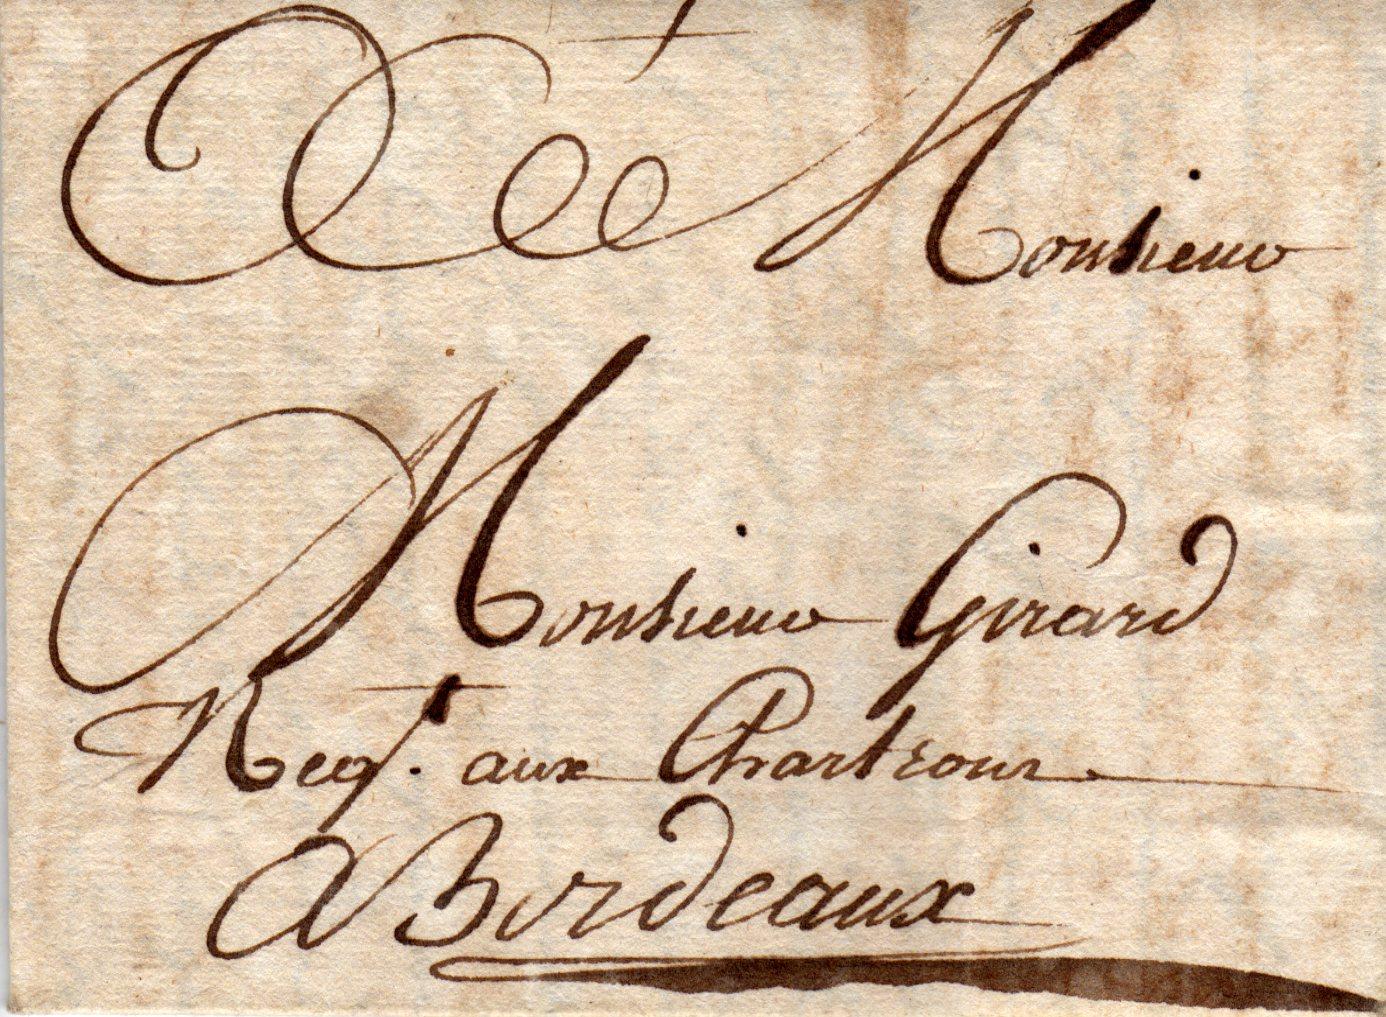 A Monsieur
Monsieur Girard
Neg.t aux Chartrons
A Bordeaux